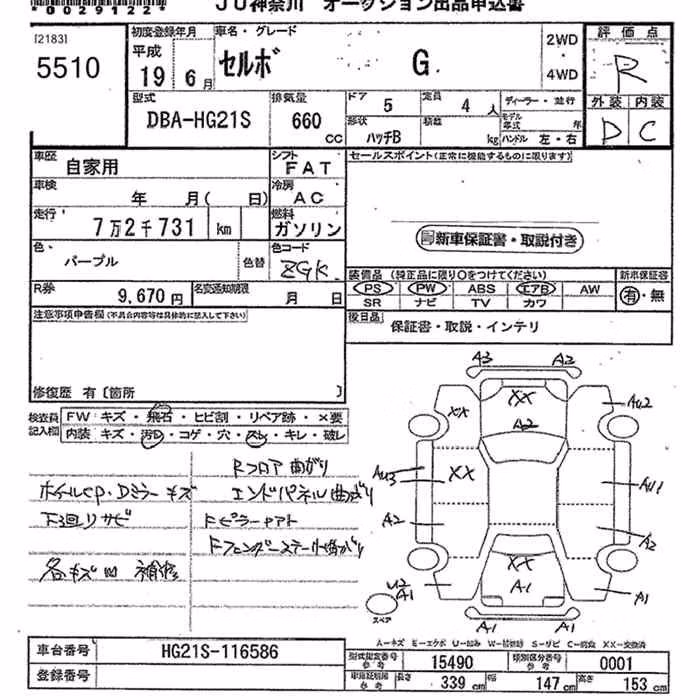 *0029122*
JU神奈川 オークション出品申込書
[2183]
5510
初度登録年月
平成
19 6月
車名・グレード
セルボ G
2WD
4WD
評価点
R
外装 内装
D C
型式
DBA-HG21S
排気量
660 cc
ドア 5
定員 4 人
形状 ハッチB
積載 kg
ディーラー・並行
モデル年式 年
ハンドル 左・右
車歴 自家用
シフト FAT
車検 年 月( 日)
冷房 AC
走行 7万2千731 km
燃料 ガソリン
色 パープル
色替
色コード ZGK
R券 9,670円
名変通知期限 月 日
セールスポイント(正常に機能するものに限ります)
新車保証書・取説付き
装備品 (純正品に限り○をつけてください)
新車保証書
PS PW ABS エアB AW
SR ナビ TV カワ
有・無
後日品 保証書・取説・インテリ
注意事項申告欄(不具合内容等は具体的に記入して下さい)
修復歴 有〔箇所 〕
検査員記入欄
FW キズ・飛石・ヒビ割・リペア跡・×要
内装 キズ・汚れ・コゲ・穴・スレ・キレ・破レ
Rフロア曲がり
ホイルCP・Dミラーキズ エンドパネル曲がり
下廻リサビ
各キズ凹 補修
A3 A2
XX XX
A2
AU2
AU3
XX
AU1
A2
A2
XX
A1
U2
A1
A1
スペア
A1 A1
A-キズ E-エクボ U-凹み W-補修跡 S-サビ C-腐食 XX-交換済
車台番号 HG21S-116586
登録番号
型式指定番号 参考 15490
類別区分番号 参考 0001
長さ 339 cm
幅 147 cm
高さ 153 cm